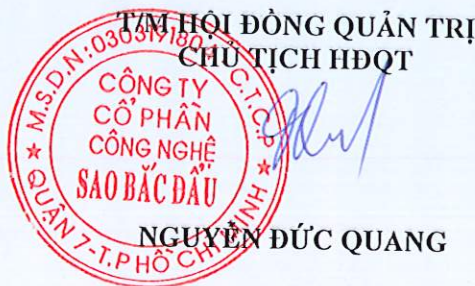 T/M HỘI ĐỒNG QUẢN TRỊ
CHỦ TỊCH HĐQT
CÔNG TY
CỔ PHẦN
CÔNG NGHỆ
SAO BẮC ĐẨU
QUẬN 7-T.P HỒ CHÍ MINH
NGUYỄN ĐỨC QUANG